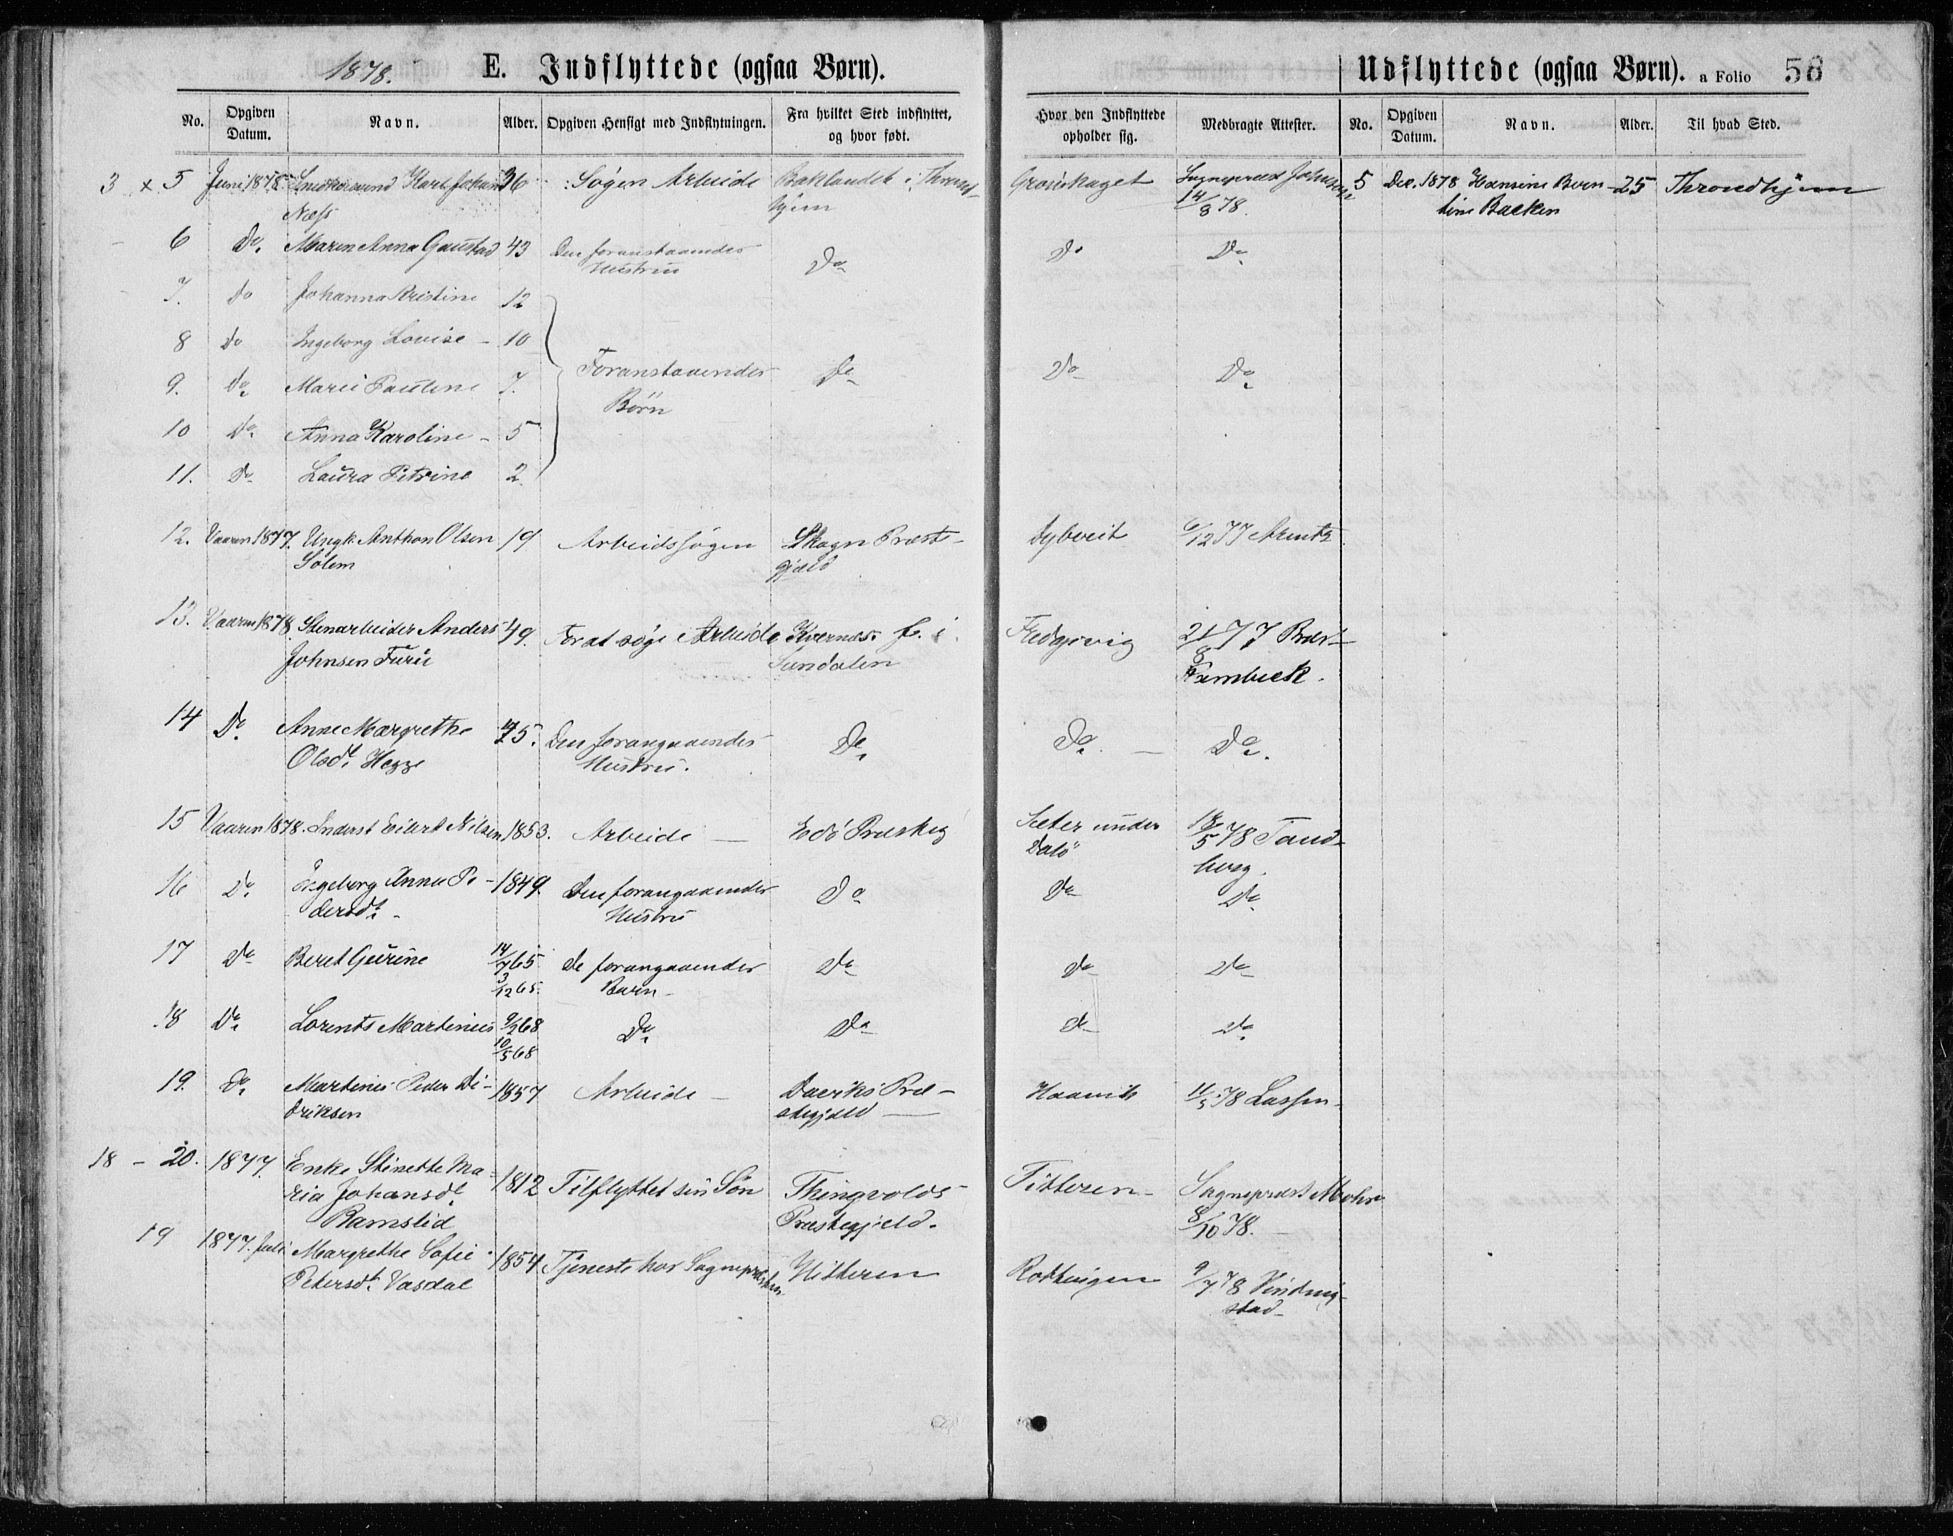 1878.
E. Indflyttede (ogsaa Børn).
Udflyttede (ogsaa Børn). a Folio 58
No. Opgiven Datum. Navn. Alder. Opgiven Hensigt med Indflytningen. Fra hvilket Sted indflyttet, og hvor født. Hvor den Indflyttede opholder sig. Medbragte Attester. No. Opgiven Datum. Navn. Alder. Til hvad Sted.
3 x 5 Juni 1878. Karl Johan 36 Søgen Arbeide Baklandet i Thrond- Sognepræst Johnsen 5 Dec. 1878 Hansine Bern- 25 Throndhjem
Næss hjem 14/8 78. tine Backen
6 Do. Maren Anna Gaustad 43 Den foranstaaendes Do Do Do
Hustru
7. Do Johanna Kristine 12
8 Do Ingeborg Lovise - 10
9. Do Marie Pauline 7. Foranstaaendes Do Do Do
Børn
10 Do. Anna Karoline - 5
11. Do Laura Petrine 2
12. Vaaren 1877. Ungk. Anthon Olsen 19 Arbeidssøgen Skogn Præste- Dybveit 6/12 77 Arentz
Solem gjæld
13. Vaaren 1878 Stenarbeider Anders 49. For at søge Arbeide Kvernes. f. i 21/8 77
Johnsen Furu Sundalen
14 Do. Anne Margrethe 45. Den forangaaendes Do Do. Do.
Olsdt. Hustru.
15 Vaaren 1878. Inderst Eilert Nilsen 1853. Arbeide Edø Sæter under 18/5 78 Tand-
Dalø berg.
16 Do Ingeborg Anna Pe- 1849. Den forangaaendes Do Do Do
dersdt. Hustru
17 Do Beret Gurine 14/7 65 De forangaaendes Do Do Do
3/12 65. Barn
18 Do. Lorents Martinus 9/2 68 Do. Do Do Do
10/5 68
19. Do. Martinus Peder Di- 1857 Arbeide Præ- 11/5 78 Lassen
driksen stegjæld
18 - 20. 1877. Enke Stinette Ma- 1812 Tilflyttet sin Søn Thingvolds Titteren Sognepræst Mohr
ria Johansdt. Præstegjeld. 8/10 78.
Ramslid
19 1877. Juli Margrethe Sofie 1854 Tjeneste hos Sognepræsten Hitteren 9/7 78
Petersdt. Vasdal